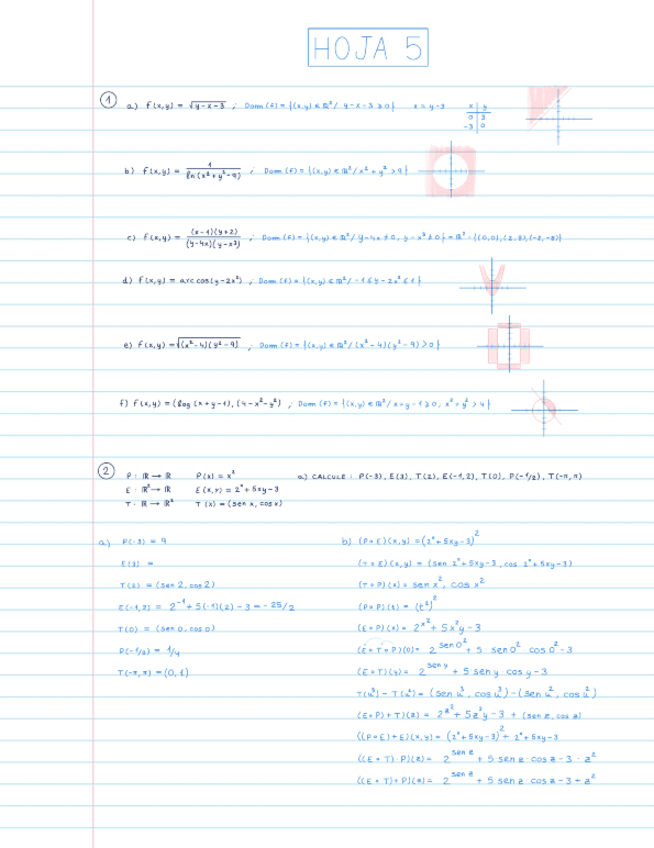 HOJA 5
① a) f(x,y) = √(y-x-3) ; Dom(f) = {(x,y) ∈ ℝ² / y-x-3 ≥ 0} x = y-3
x | y
0 | 3
-3 | 0
b) f(x,y) = 1 / ln(x²+y²-9) ; Dom(f) = {(x,y) ∈ ℝ² / x²+y² > 9}
c) f(x,y) = (x-1)(y+2) / (y-4x)(y-x³) ; Dom(f) = {(x,y) ∈ ℝ² / y-4x ≠ 0, y-x³ ≠ 0} = ℝ² - {(0,0),(2,8),(-2,-8)}
d) f(x,y) = arccos(y-2x²) ; Dom(f) = {(x,y) ∈ ℝ² / -1 ≤ y-2x² ≤ 1}
e) f(x,y) = √((x²-4)(y²-9)) ; Dom(f) = {(x,y) ∈ ℝ² / (x²-4)(y²-9) ≥ 0}
f) f(x,y) = (log(x+y-1), (4-x²-y²) ; Dom(f) = {(x,y) ∈ ℝ² / x+y-1 ≥ 0, x²+y² > 4}
② P: ℝ → ℝ P(x) = x² a) CALCULE: P(-3), E(3), T(2), E(-1,2), T(0), P(-1/2), T(-π,π)
E: ℝ² → ℝ E(x,y) = 2ˣ + 5xy - 3
T: ℝ → ℝ² T(x) = (sen x, cos x)
a) P(-3) = 9
E(3) =
T(2) = (sen 2, cos 2)
E(-1,2) = 2⁻¹ + 5(-1)(2) - 3 = -25/2
T(0) = (sen 0, cos 0)
P(-1/2) = 1/4
T(-π,π) = (0,1)
b) (P∘E)(x,y) = (2ˣ + 5xy - 3)²
(T∘E)(x,y) = (sen 2ˣ + 5xy - 3, cos 2ˣ + 5xy - 3)
(T∘P)(x) = sen x², cos x²
(P∘P)(t) = (t²)²
(E∘P)(x) = 2^(x²) + 5x²y - 3
(E∘T∘P)(0) = 2^(sen 0²) + 5 · sen 0² · cos 0² - 3
(E∘T)(y) = 2^(sen y) + 5 · sen y · cos y - 3
T(u³) - T(u²) = (sen u³, cos u³) - (sen u², cos u²)
(E∘P) + T)(z) = 2^(z²) + 5z²y - 3 + (sen z, cos z)
((P∘E) + E)(x,y) = (2ˣ + 5xy - 3)² + 2ˣ + 5xy - 3
((E∘T) · P)(z) = 2^(sen z) + 5 sen z · cos z - 3 · z²
((E∘T) + P)(z) = 2^(sen z) + 5 sen z · cos z - 3 + z²